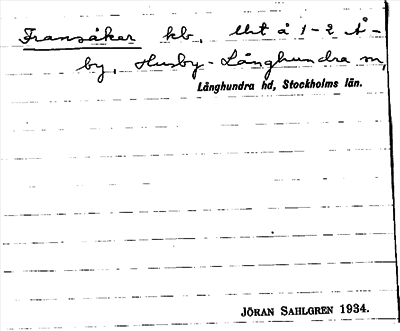 Fransåker kb. Utt å 1-2 Å-
by, Husby-Långhundra sn,
Långhundra hd, Stockholms län.
JÖRAN SAHLGREN 1934.